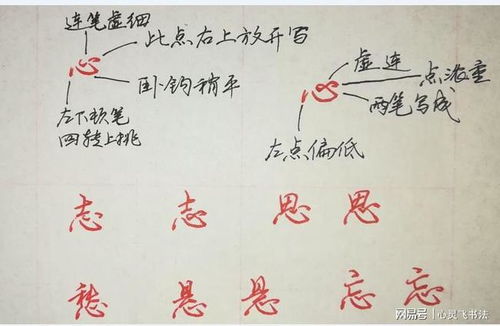 连笔虚细
此点右上放开写
心
卧钩稍平
左下顿笔
回转上挑
虚连
点波重
心
两笔写成
左点偏低
志 志 思 思
悬 悬 忘 忘
网易号 | 心灵飞书法